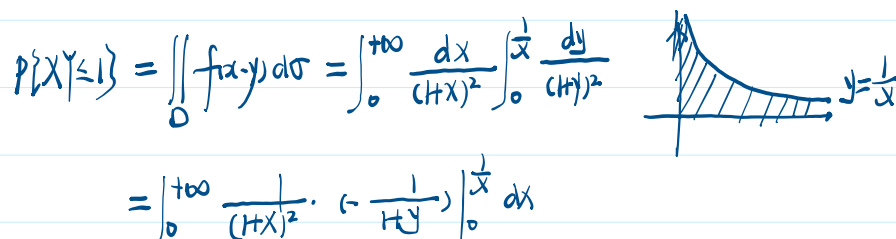 P{XY≤1} = ∬_D f(x,y)dσ = ∫_0^{+∞} \frac{dx}{(1+x)^2} ∫_0^{\frac{1}{x}} \frac{dy}{(1+y)^2}
y=\frac{1}{x}
= ∫_0^{+∞} \frac{1}{(1+x)^2} · (-\frac{1}{1+y}) |_0^{\frac{1}{x}} dx